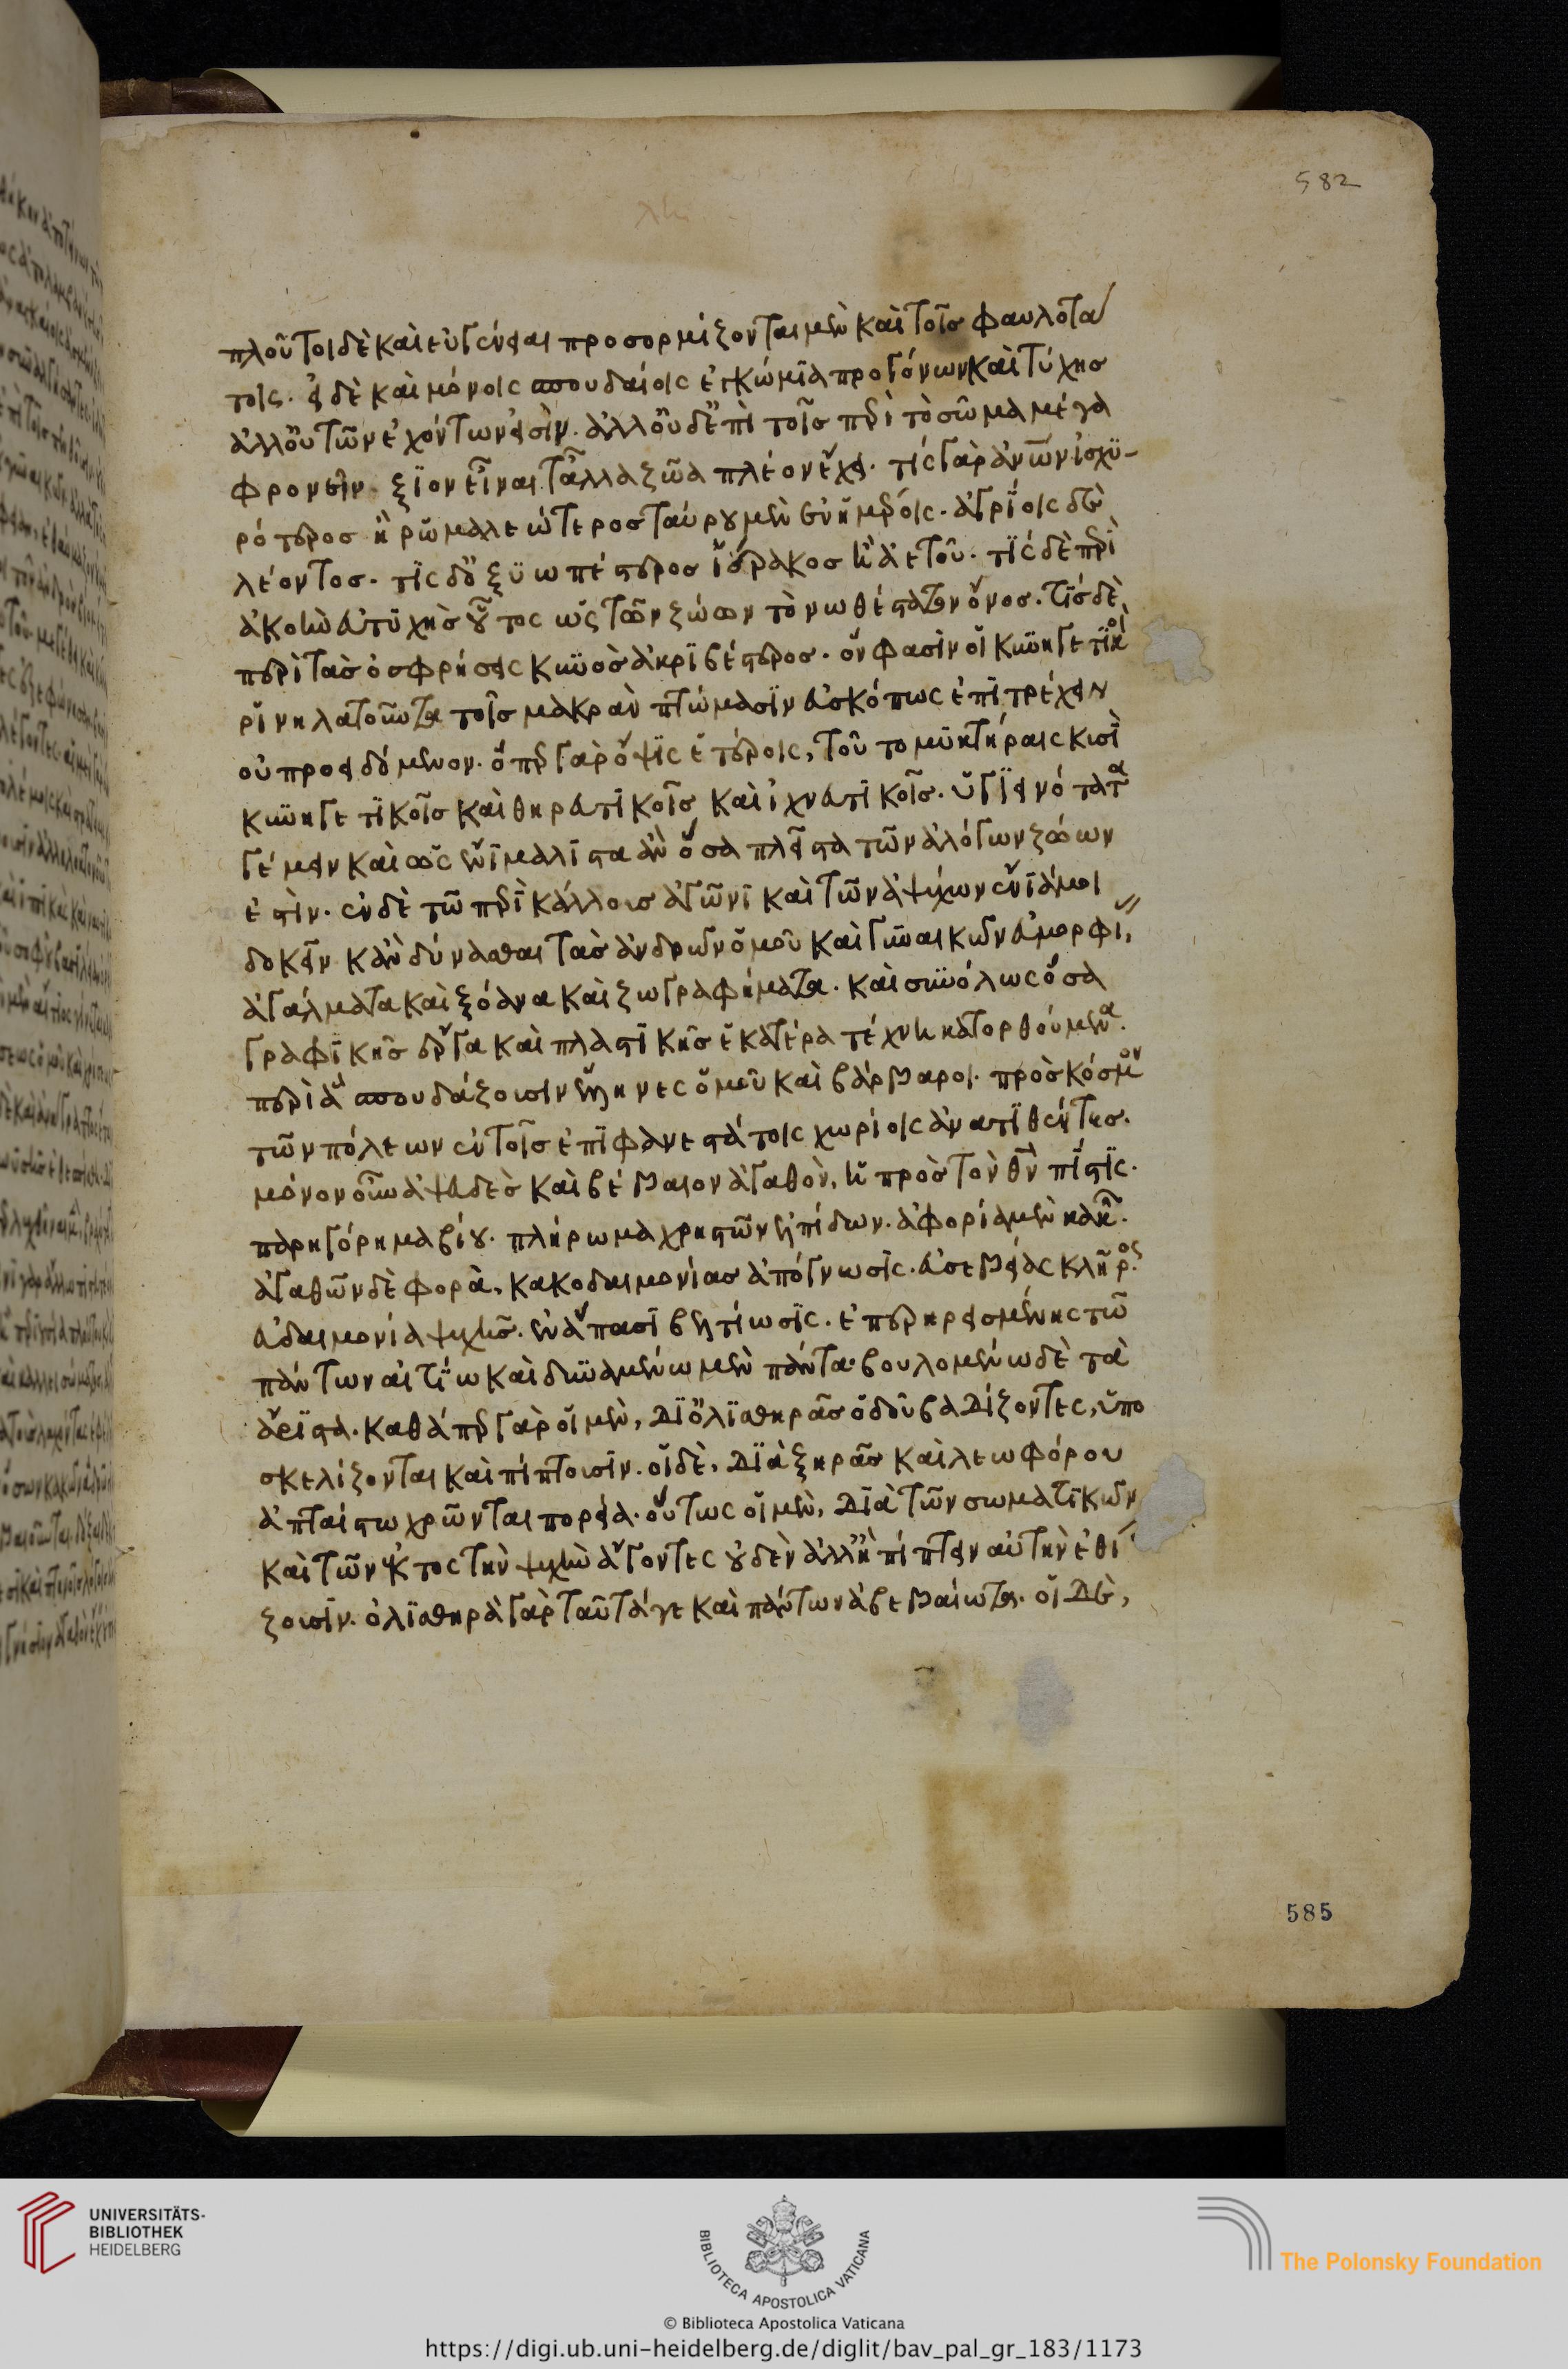 πλοῦτοι δὲ καὶ εὐγένειαι προσορμίζονται μὲν καὶ τοῖς φαυλοτά
τοις. εἰ δὲ καὶ μόνοις σπουδαίοις ἐγκώμϊα προγόνων καὶ τύχης
ἀλλ' οὐ τῶν ἐχόντων εἰσὶν. ἀλλ' οὐδ' ἐπὶ τοῖς περὶ τὸ σῶμα μέγα
φρονεῖν ξϊον εἶναι τἄλλα ζῶα πλέον ἔχει. τίς γὰρ ἀνων ἰσχϋ-
ρότερος ἢ ῥωμαλεώτερος ταύρου μὲν ἐν ἡμέροις. ἀγρίοις δὲ
λέοντος. τίς δ' ὀξϋωπέστερος ἱέρακος ἢ ἀετοῦ. τίς δὲ περὶ
ἀκοὴν εὐτϋχὴς οὗτος ὡς τῶν ζώων τὸ νωθέστατον ὄνος. τίς δὲ
περὶ τὰς ὀσφρήσεις κϋνὸς ἀκρϊβέστερος. ὅν φασὶν οἱ κϋνηγετϊκοὶ
ῥϊνηλατοῦντα τοῖς μακρὰν πτώμασϊν εὐσκόπως ἐπϊτρέχειν
οὐ προειδόμενον. ὅπερ γὰρ ὄψϊς ἑτέροις, τοῦτο μϋκτήραις κυσὶ
κϋνηγετϊκοῖς καὶ θηρευτϊκοῖς καὶ ἰχνευτϊκοῖς. ὑγϊεινότατα
γέ μειν καὶ ὡς ἔνϊ μάλϊστα ἂν ὅσα πλεῖστα τῶν ἀλόγων ζώων
ἐστὶν. ἐν δὲ τῶ περὶ κάλλους ἀγῶνϊ καὶ τῶν ἀψύχων ἔνϊά μοι
δοκεῖν κἂν δύνασθαι τὰς ἀνδρῶν ὁμοῦ καὶ γϋναικῶν εὐμορφι,
ἀγάλματα καὶ ξόανα καὶ ζωγραφήματα. καὶ συνόλως ὅσα
γραφϊκῆς ἔργα καὶ πλαστϊκῆς ἑκατέρα τέχνη κατορθούμενα.
περὶ ἃ σπουδάζουσιν ἕλληνες ὁμοῦ καὶ βάρβαροι. πρὸς κόσμον
τῶν πόλεων ἐν τοῖς ἐπϊφανεστάτοις χωρίοις ἀνατϊθέντες.
μόνον οὖν ἀψευδὲς καὶ βέβαιον ἀγαθὸν, ἡ πρὸς τὸν θν πίστϊς.
παρηγόρημα βίου. πλήρωμα χρηστῶν ἐλπίδων. ἀφορία μὲν κακῶν.
ἀγαθῶν δὲ φορὰ, κακοδαιμονίας ἀπόγνωσϊς. εὐσεβείας κλῆρος.
εὐδαιμονία ψυχῆς. ἐν ἅπασϊ βελτίωσϊς. ἐπερηρεισμένης τῶ
πάντων αἰτϊω καὶ δϋναμένω μὲν πάντα. βουλομένω δὲ τὰ
ἄρϊστα. καθάπερ γὰρ οἱ μὲν, δϊ' ὀλϊσθηρᾶς ὁδοῦ βαδίζοντες, ὑπο
σκελίζονται καὶ πίπτουσϊν. οἱ δὲ, δϊὰ ξηρᾶς καὶ λεωφόρου
ἀπταίστω χρῶνται πορεία. οὕτως οἱ μὲν, δϊὰ τῶν σωματϊκῶν
καὶ τῶν ἐκτὸς τὴν ψυχὴν ἄγοντες οὐδὲν ἀλλ' ἢ πίπτειν αὐτὴν ἐθί
ζουσϊν. ὀλϊσθηρὰ γὰρ ταῦτά γε καὶ πάντων ἀβεβαιώτατα. οἱ δὲ,
582
585
UNIVERSITÄTS-
BIBLIOTHEK
HEIDELBERG
BIBLIOTECA APOSTOLICA VATICANA
The Polonsky Foundation
© Biblioteca Apostolica Vaticana
https://digi.ub.uni-heidelberg.de/diglit/bav_pal_gr_183/1173